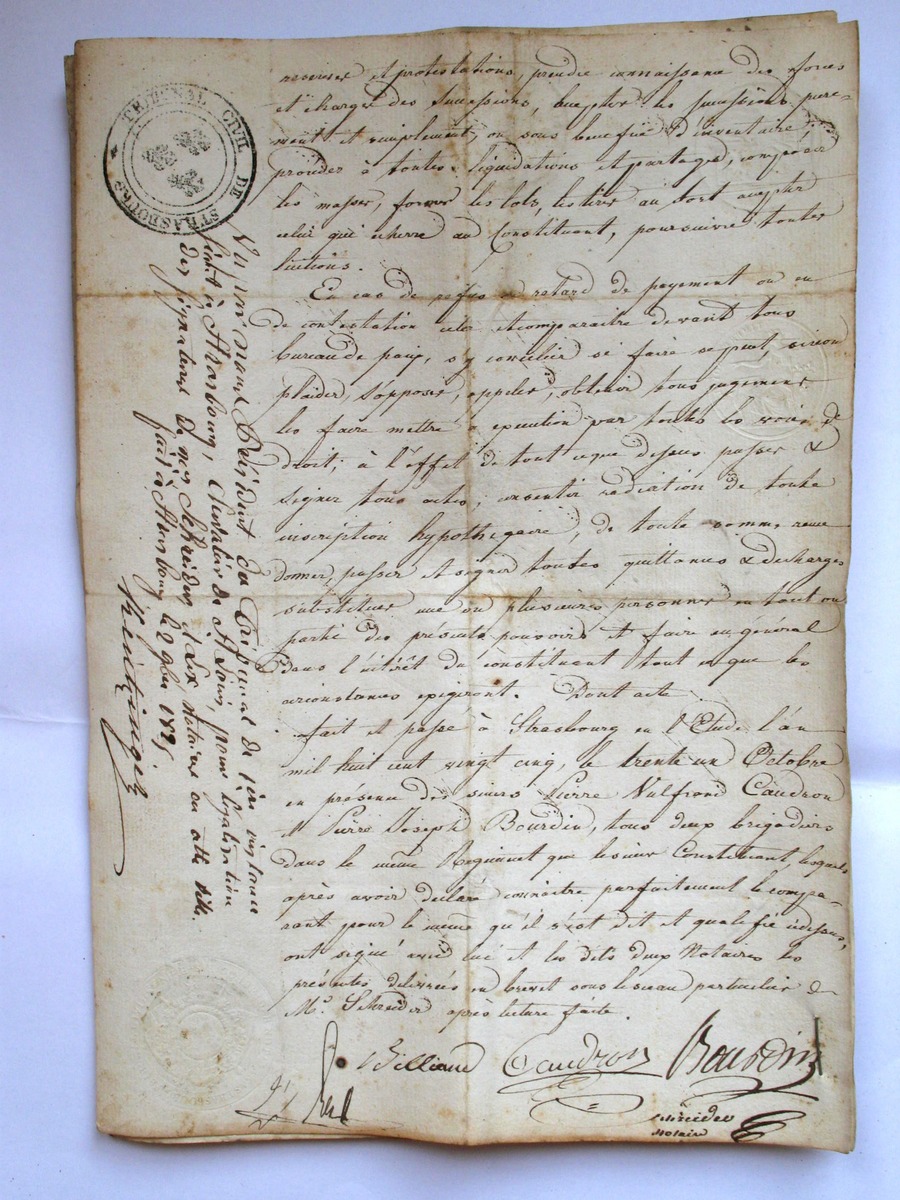 TRIBUNAL CIVIL DE STRASBOURG
reserves et protestations, prendre connaissance des forces
et charges des successions, accepter les successions pure-
ment et simplement, ou sous benefice d'inventaire,
proceder à toutes liquidations et partages, composer
les masses, former les lots, les tirer au sort accepter
celui qui echerra au Constituant, poursuivre toutes
En cas de refus ou retard de payement ou en
de contestation citer et comparaitre devant tous
bureau de paix, s'y concilier si faire se peut, sinon
plaider, s'opposer, appeler, obtenir tous jugements
les faire mettre à execution par toutes les voies de
droit; à l'effet de tout ce que dessus passer &
signer tous actes, consentir radiation de toute
inscription hypothecaire, de toute somme recue
donner, passer et signer toutes quittances & decharges
substituer une ou plusieures personnes en tout ou
partie des présents pouvoirs et faire en général
dans l'intérêt du constituant tout ce que les
circonstances exigeront. Dont acte
fait et passé à Strasbourg en l'Etude l'an
mil huit cent vingt cinq, le trente un Octobre
en présence des sieurs Pierre Vulfrand Caudron
et Pierre Joseph Bourdin, tous deux brigadiers
dans le même Regiment que le sieur Constituant, lesquels
après avoir declaré connaitre parfaitement le compa-
rant pour le même qu'il s'est dit et qualifié cidessus,
ont signé avec lui et les dits deux Notaires les
présentes delivrées en brevet sous le sceau particulier de
Me. Schreider après lecture faite.
Billiand Caudron Bourdin
Schreider
Notaire
Vu par Nous Président du Tribunal de 1ère instance
séant à Strasbourg, Chevalier de St Louis, pour légalisation
des signatures de Mes Schreider et Lex notaires en cette ville.
fait à Strasbourg le 2 9bre 1825
Kentzinger